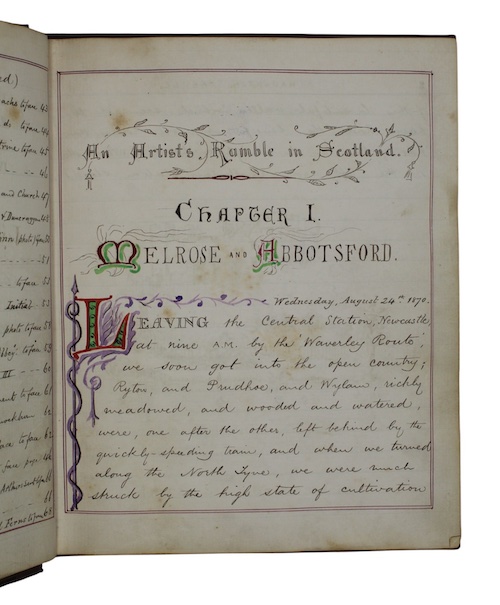 rd.)
to face 43
to face 44
to face 45
46
and Church 47
photo to face 51
to face 53
III
to face 61
to face 62
An Artist's Ramble in Scotland.
Chapter I.
Melrose and Abbotsford.
Wednesday, August 24th. 1870.
Leaving the Central Station, Newcastle,
at nine A.M. by the 'Waverley Route',
we soon got into the open country;
Ryton, and Prudhoe, and Wylam, richly
meadowed, and wooded and watered,
were, one after the other, left behind by the
quickly-speeding train, and when we turned
along the North Tyne, we were much
struck by the high state of cultivation